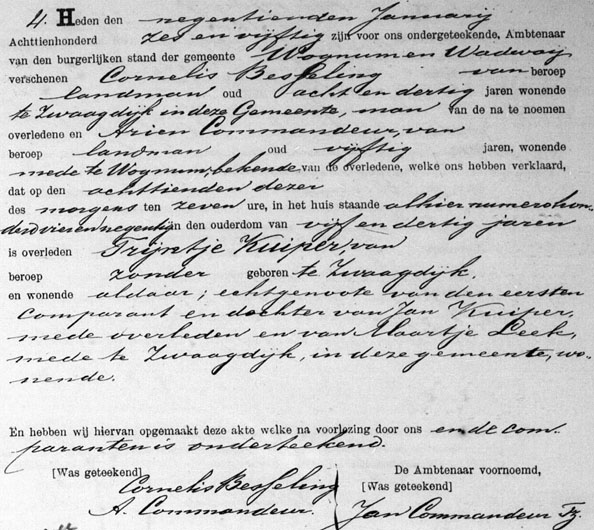 4. Heden den negentienden Januarij
Achttienhonderd zes en vijftig zijn voor ons ondergeteekende, Ambtenaar
van den burgerlijken stand der gemeente Wognum en Wadway
verschenen Cornelis Besseling van beroep
landman oud acht en dertig jaren wonende
te Zwaagdijk in deze Gemeente, man van de na te noemen
overledene en Arien Commandeur, van
beroep landman oud vijftig jaren, wonende
mede te Wognum, bekende van de overledene, welke ons hebben verklaard,
dat op den achttienden dezer
des morgens ten zeven ure, in het huis staande alhier numero hon-
derd vier en negentig in den ouderdom van vijf en dertig jaren
is overleden Trijntje Kuiper, van
beroep zonder geboren te Zwaagdijk.
en wonende aldaar; echtgenoote van den eersten
comparant en dochter van Jan Kuiper,
mede overleden en van Maartje Leek,
mede te Zwaagdijk, in deze gemeente, wo-
nende.
En hebben wij hiervan opgemaakt deze akte welke na voorlezing door ons en de com-
paranten is onderteekend.
[Was geteekend] De Ambtenaar voornoemd,
Cornelis Besseling [Was geteekend]
A. Commandeur. Jan Commandeur Tz.